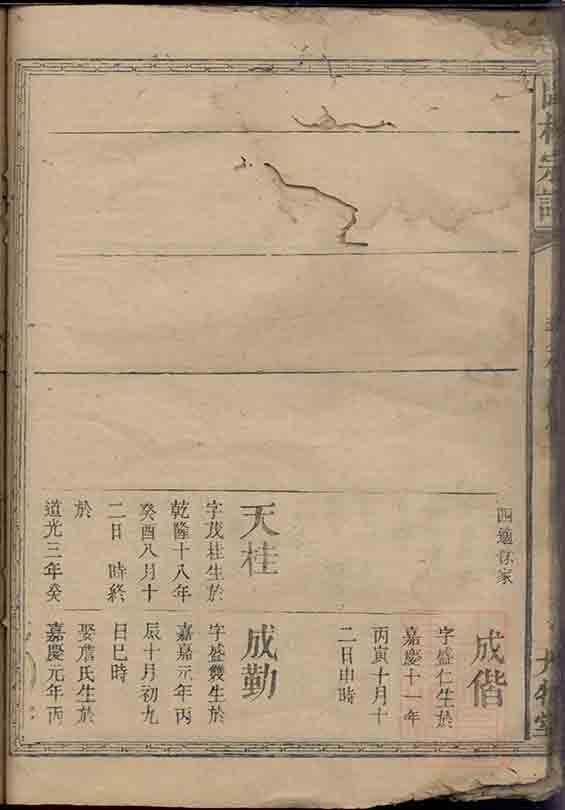 四適孫家
天桂
字茂桂生於
乾隆十八年
癸酉八月十
二日 時終
於
道光三年癸
成偕
字盛仁生於
嘉慶十一年
丙寅十月十
二日申時
成勤
字盛幾生於
嘉嘉元年丙
辰十月初九
日巳時
娶詹氏生於
嘉慶元年丙